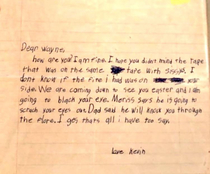 Dear Wayne,
how are you? I am fine. I hope you didn't mind the tape
that was on the same tape with
I dont know if the fire I had was on your
side. We are coming down to see you easter and I am
going to black your eye. says he is going to
scratch your eyes out. Dad said he will knock you through
the floor. I ges thats all I have too say.
love Kevin